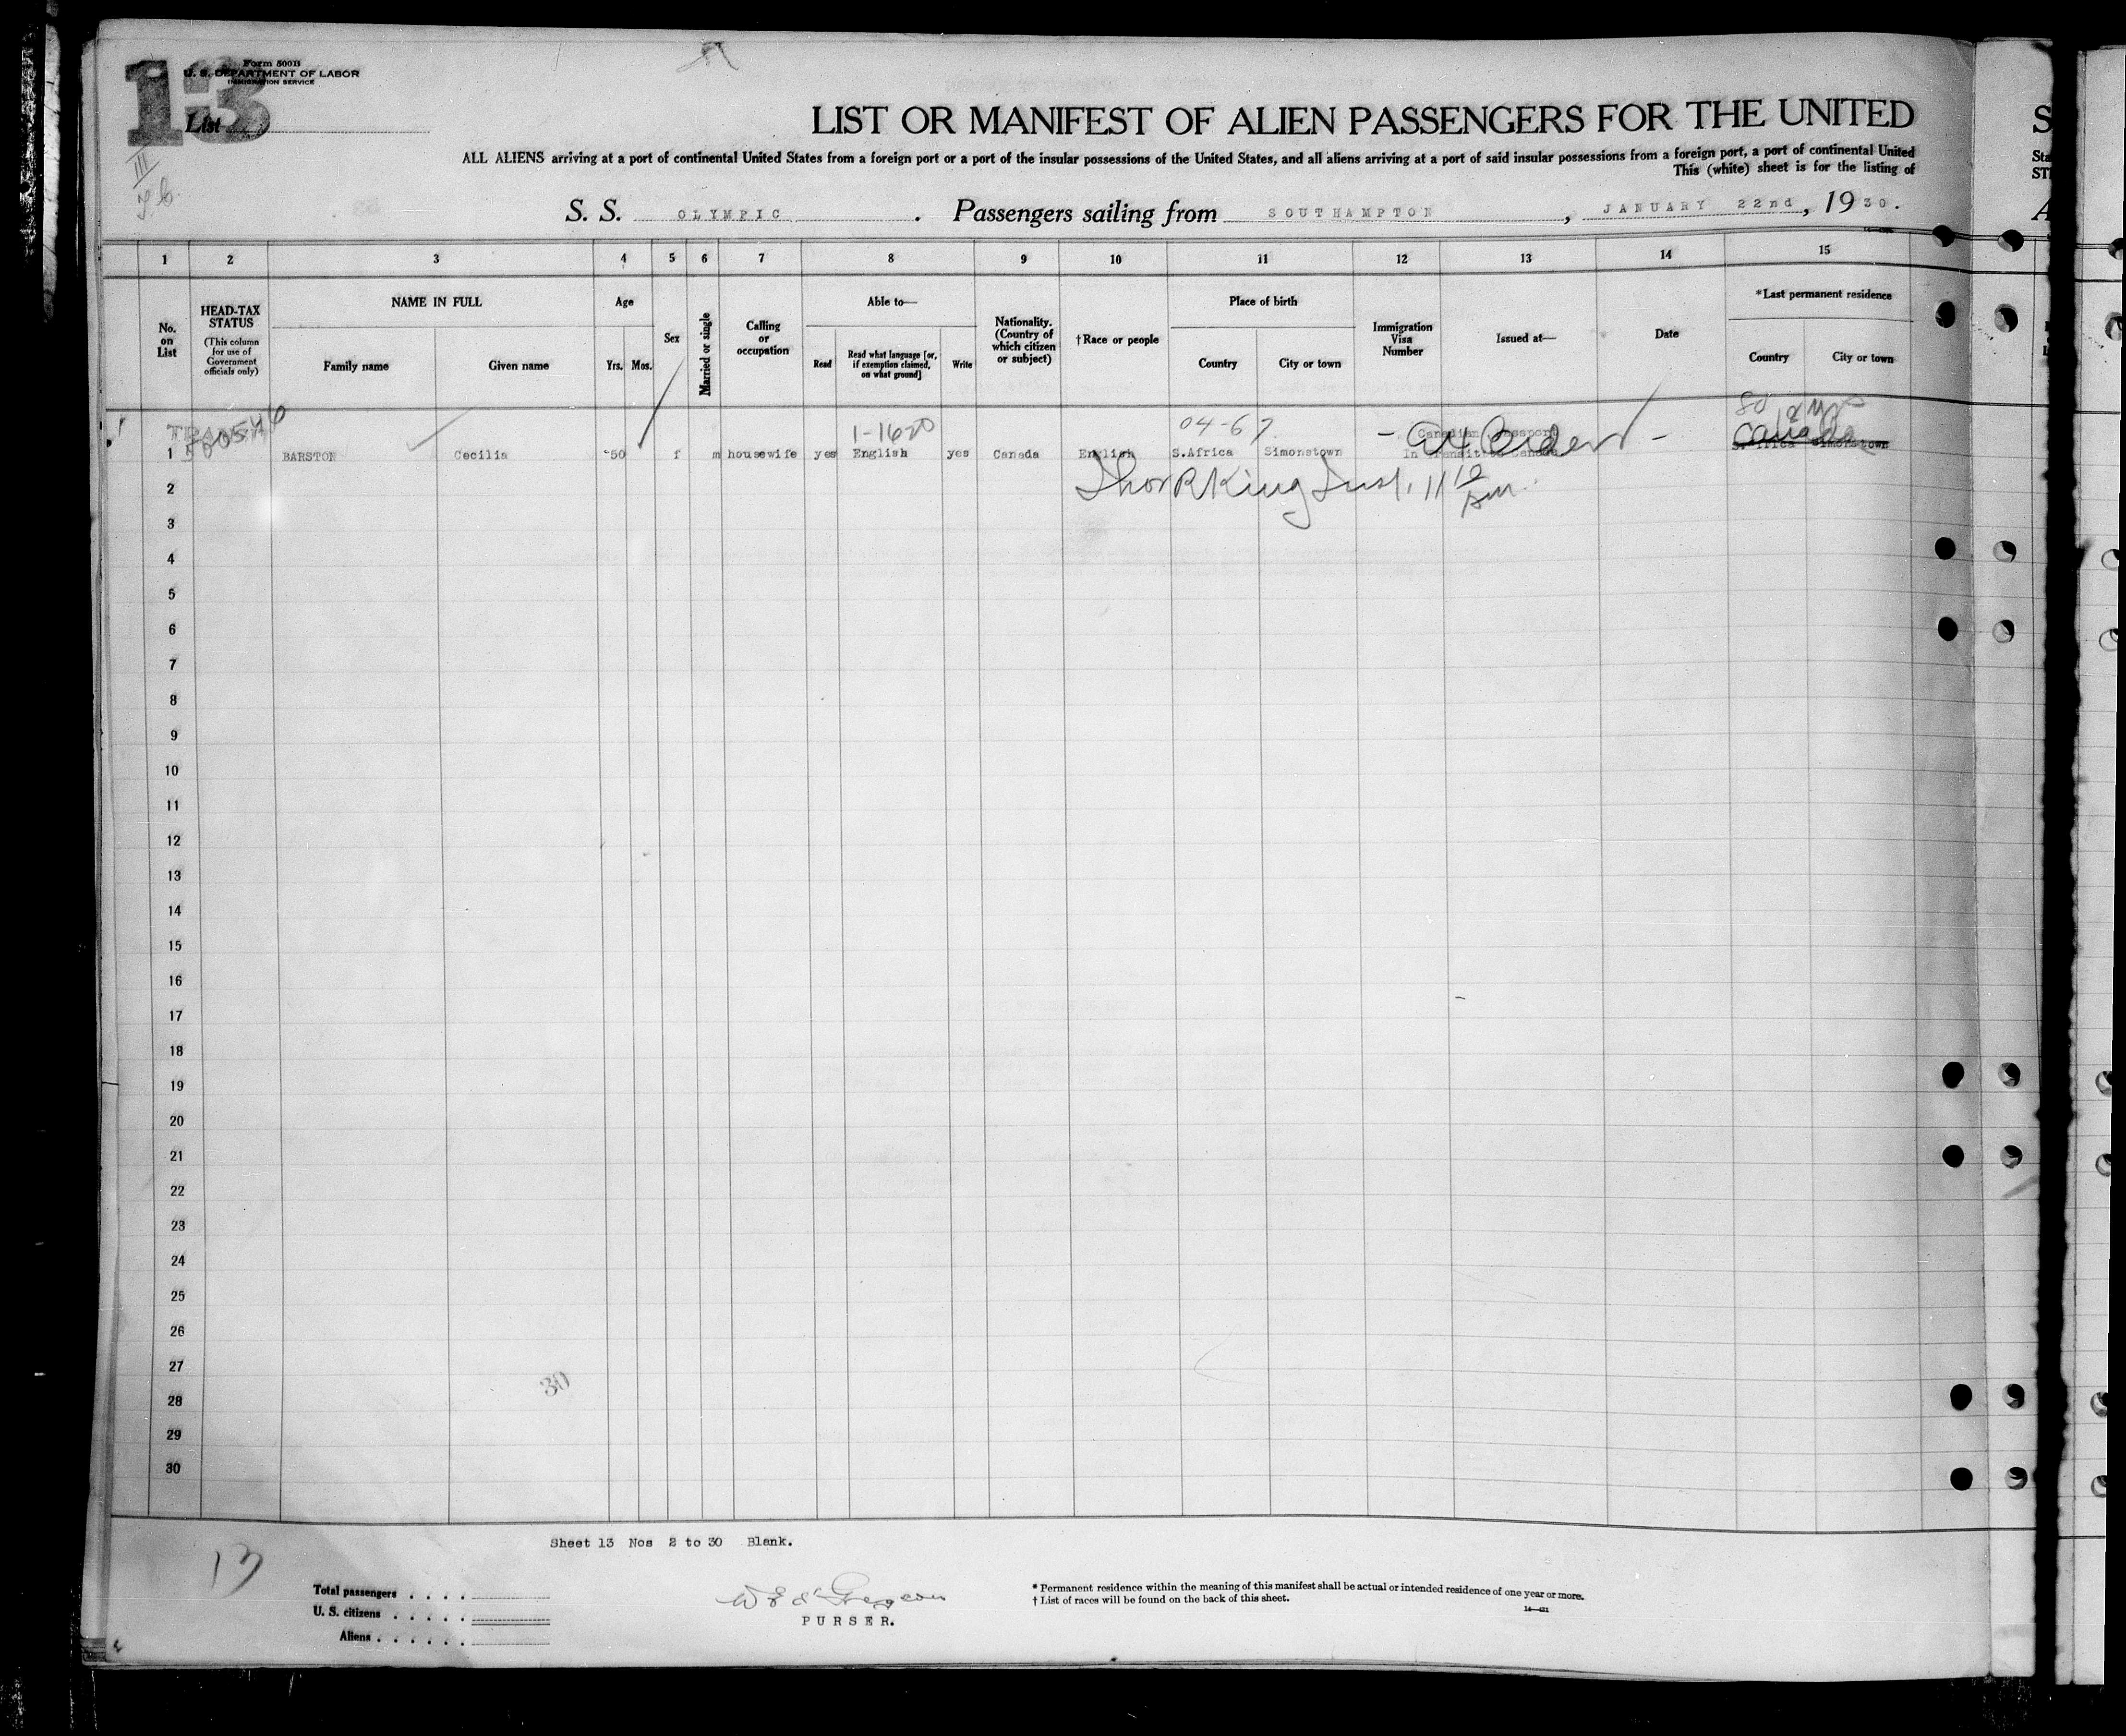 13
Form 500B
U. S. DEPARTMENT OF LABOR
IMMIGRATION SERVICE
List
III
LIST OR MANIFEST OF ALIEN PASSENGERS FOR THE UNITED
ALL ALIENS arriving at a port of continental United States from a foreign port or a port of the insular possessions of the United States, and all aliens arriving at a port of said insular possessions from a foreign port, a port of continental United
This (white) sheet is for the listing of
S. S. OLYMPIC . Passengers sailing from SOUTHAMPTON , JANUARY 22nd , 1930.
1 2 3 4 5 6 7 8 9 10 11 12 13 14 15
No. on List
HEAD-TAX STATUS (This column for use of Government officials only)
NAME IN FULL
Family name Given name
Age
Yrs. Mos.
Sex
Married or single
Calling or occupation
Able to—
Read Read what language [or, if exemption claimed, on what ground] Write
Nationality. (Country of which citizen or subject)
†Race or people
Place of birth
Country City or town
Immigration Visa Number
Issued at—
Date
*Last permanent residence
Country City or town
TRANSIT 1-1620 04-67 Canadian Passport Canada
1 BARSTON Cecilia 50 f m housewife yes English yes Canada English S.Africa Simonstown In Transit to Canada S. Africa Simonstown
2
3
4
5
6
7
8
9
10
11
12
13
14
15
16
17
18
19
20
21
22
23
24
25
26
27
30
28
29
30
Sheet 13 Nos 2 to 30 Blank.
13
Total passengers . . . .
U. S. citizens . . . . .
Aliens . . . . . .
PURSER.
* Permanent residence within the meaning of this manifest shall be actual or intended residence of one year or more.
† List of races will be found on the back of this sheet.